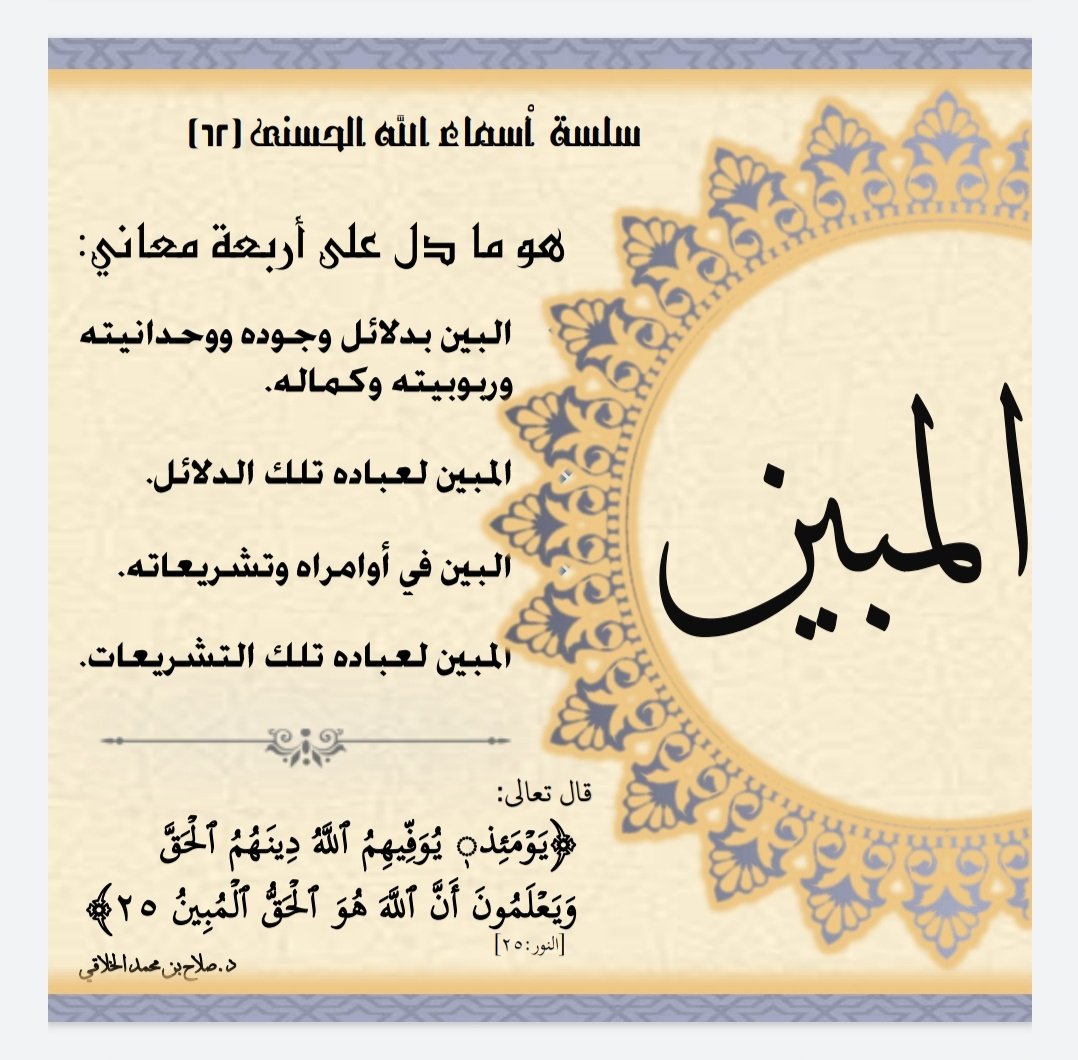 سلسة أسماء الله الحسنى (٦٢)
هو ما دل على أربعة معاني:
البين بدلائل وجوده ووحدانيته
وربوبيته وكماله.
المبين لعباده تلك الدلائل.
البين في أوامراه وتشريعاته.
المبين لعباده تلك التشريعات.
المبين
قال تعالى:
﴿يَوْمَئِذٖ يُوَفِّيهِمُ ٱللَّهُ دِينَهُمُ ٱلْحَقَّ
وَيَعْلَمُونَ أَنَّ ٱللَّهَ هُوَ ٱلْحَقُّ ٱلْمُبِينُ ٢٥﴾
[النور:٢٥]
د.صلاح بن محمد الخلاقي